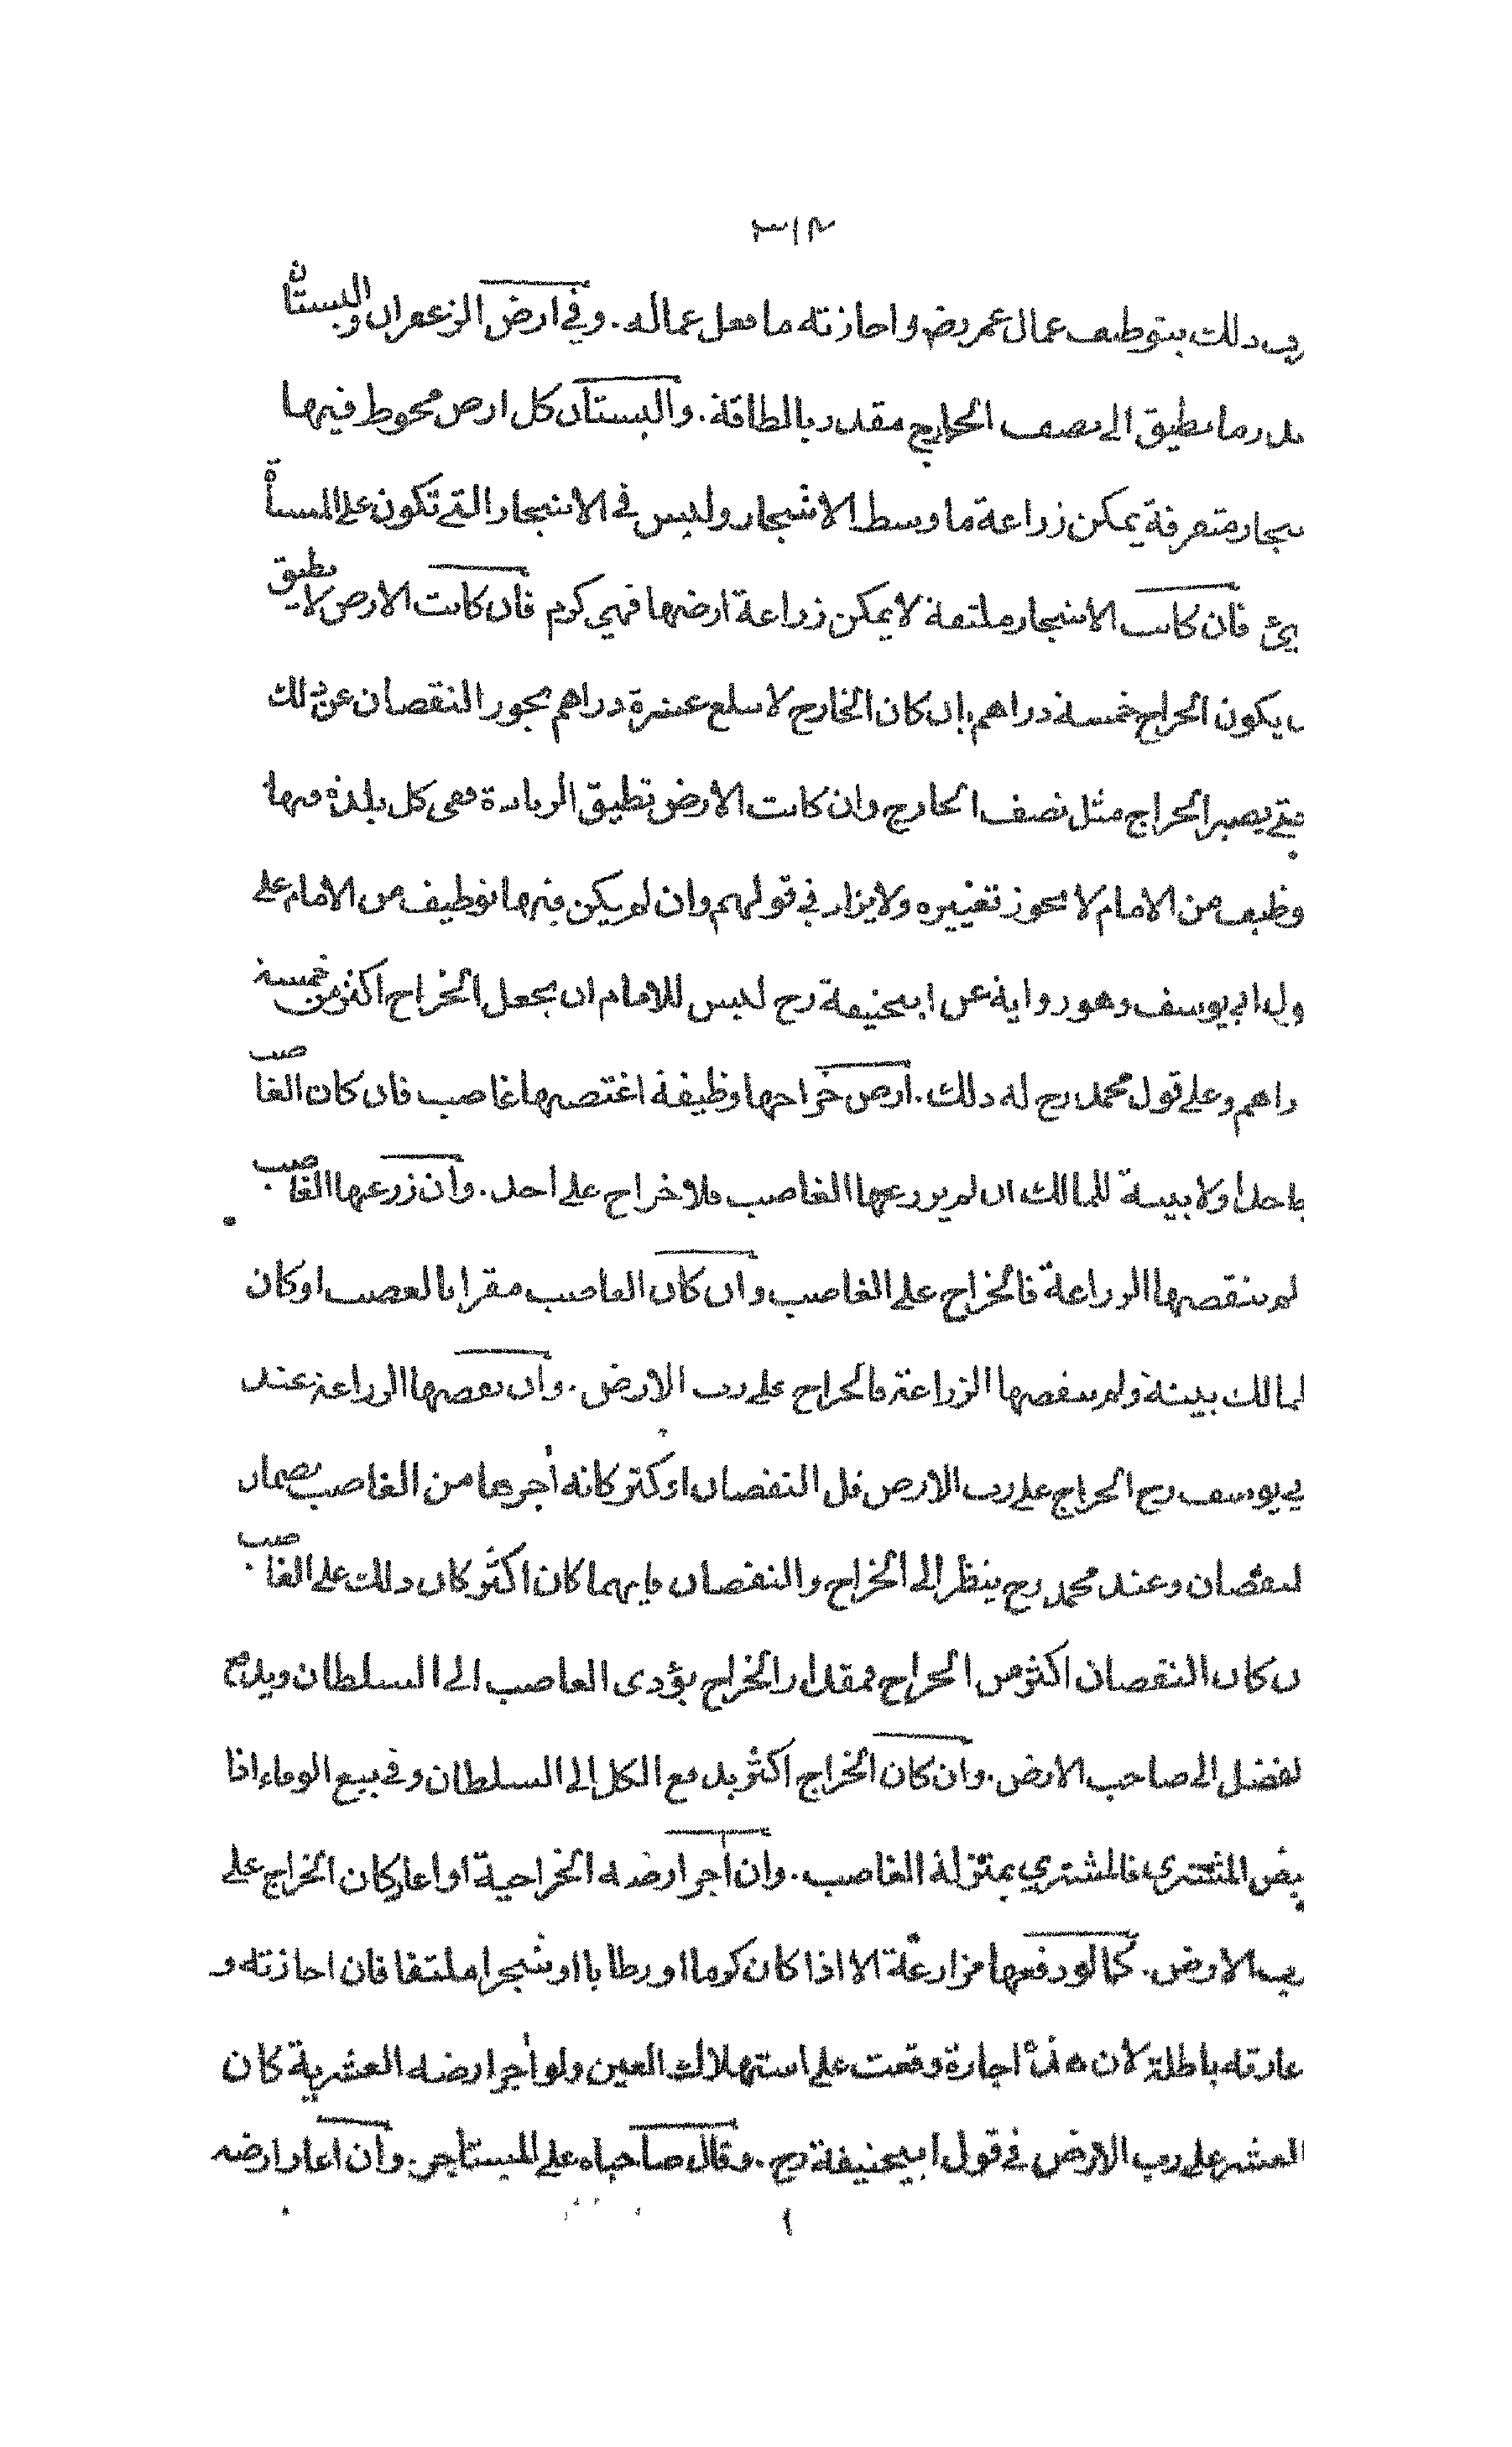 ٣١٢
ذلك بتوظيف عمال عمر رض واجازته ما فعل عماله. وفي ارض الزعفران والبستان
بقدر ما يطيق الى نصف الخارج مقدر بالطاقة. والبستان كل ارض محوط فيها
اشجار متفرقة يمكن زراعة ما وسط الاشجار وليس في الاشجار التي تكون على المسناة
شئ فان كانت الاشجار ملتفة لا يمكن زراعة ارضها فهي كرم فان كانت الارض لا تطيق
ان يكون الخراج خمسة دراهم بان كان الخارج لا يبلغ عشرة دراهم يجوز النقصان عن ذلك
حتى يصير الخراج مثل نصف الخارج وان كانت الارض تطيق الزيادة ففي كل بلدة فيها
وظيف من الامام لا يجوز تغييره ولا يزاد في قولهم وان لم يكن فيها توظيف من الامام على
قول ابي يوسف وهو رواية عن ابيحنيفة رح ليس للامام ان يجعل الخراج اكثر من خمسة
دراهم وعلى قول محمد رح له ذلك. ارض خراجها وظيفة اغتصبها غاصب فان كان الغاصب
جاحدا ولا بينة للمالك ان لم يزرعها الغاصب فلا خراج على احد. وان زرعها الغاصب
لم ينقصها الزراعة فالخراج على الغاصب وان كان الغاصب مقرا بالغصب او كان
لمالك بينة ولم ينقصها الزراعة فالخراج على رب الارض. وان نقصها الزراعة عند
ابي يوسف رح الخراج على رب الارض قل النقصان او كثر كانه أجرها من الغاصب بضمان
لنقصان وعند محمد رح ينظر الى الخراج والنقصان فايهما كان اكثر كان ذلك على الغاصب
ان كان النقصان اكثر من الخراج فمقدار الخراج يؤدى الغاصب الى السلطان ويدفع
لفضل الى صاحب الارض. وان كان الخراج اكثر يدفع الكل الى السلطان وفي بيع الوفاء اذا
قبض المشتري فالمشتري بمنزلة الغاصب. وان أجر ارضه الخراجية او اعار كان الخراج على
رب الارض. كما لو دفعها مزارعة الا اذا كان كرما او رطابا او شجرا ملتفا فان اجازته و
عارته باطلة لان هذه اجارة وقعت على استهلاك العين ولو أجر ارضه العشرية كان
العشر على رب الارض في قول ابيحنيفة رح. وقال صاحباه على المستأجر. وان اعار ارضه